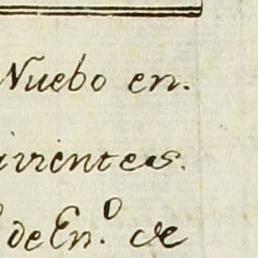 Nuebo en.
irientes.
de En.º de